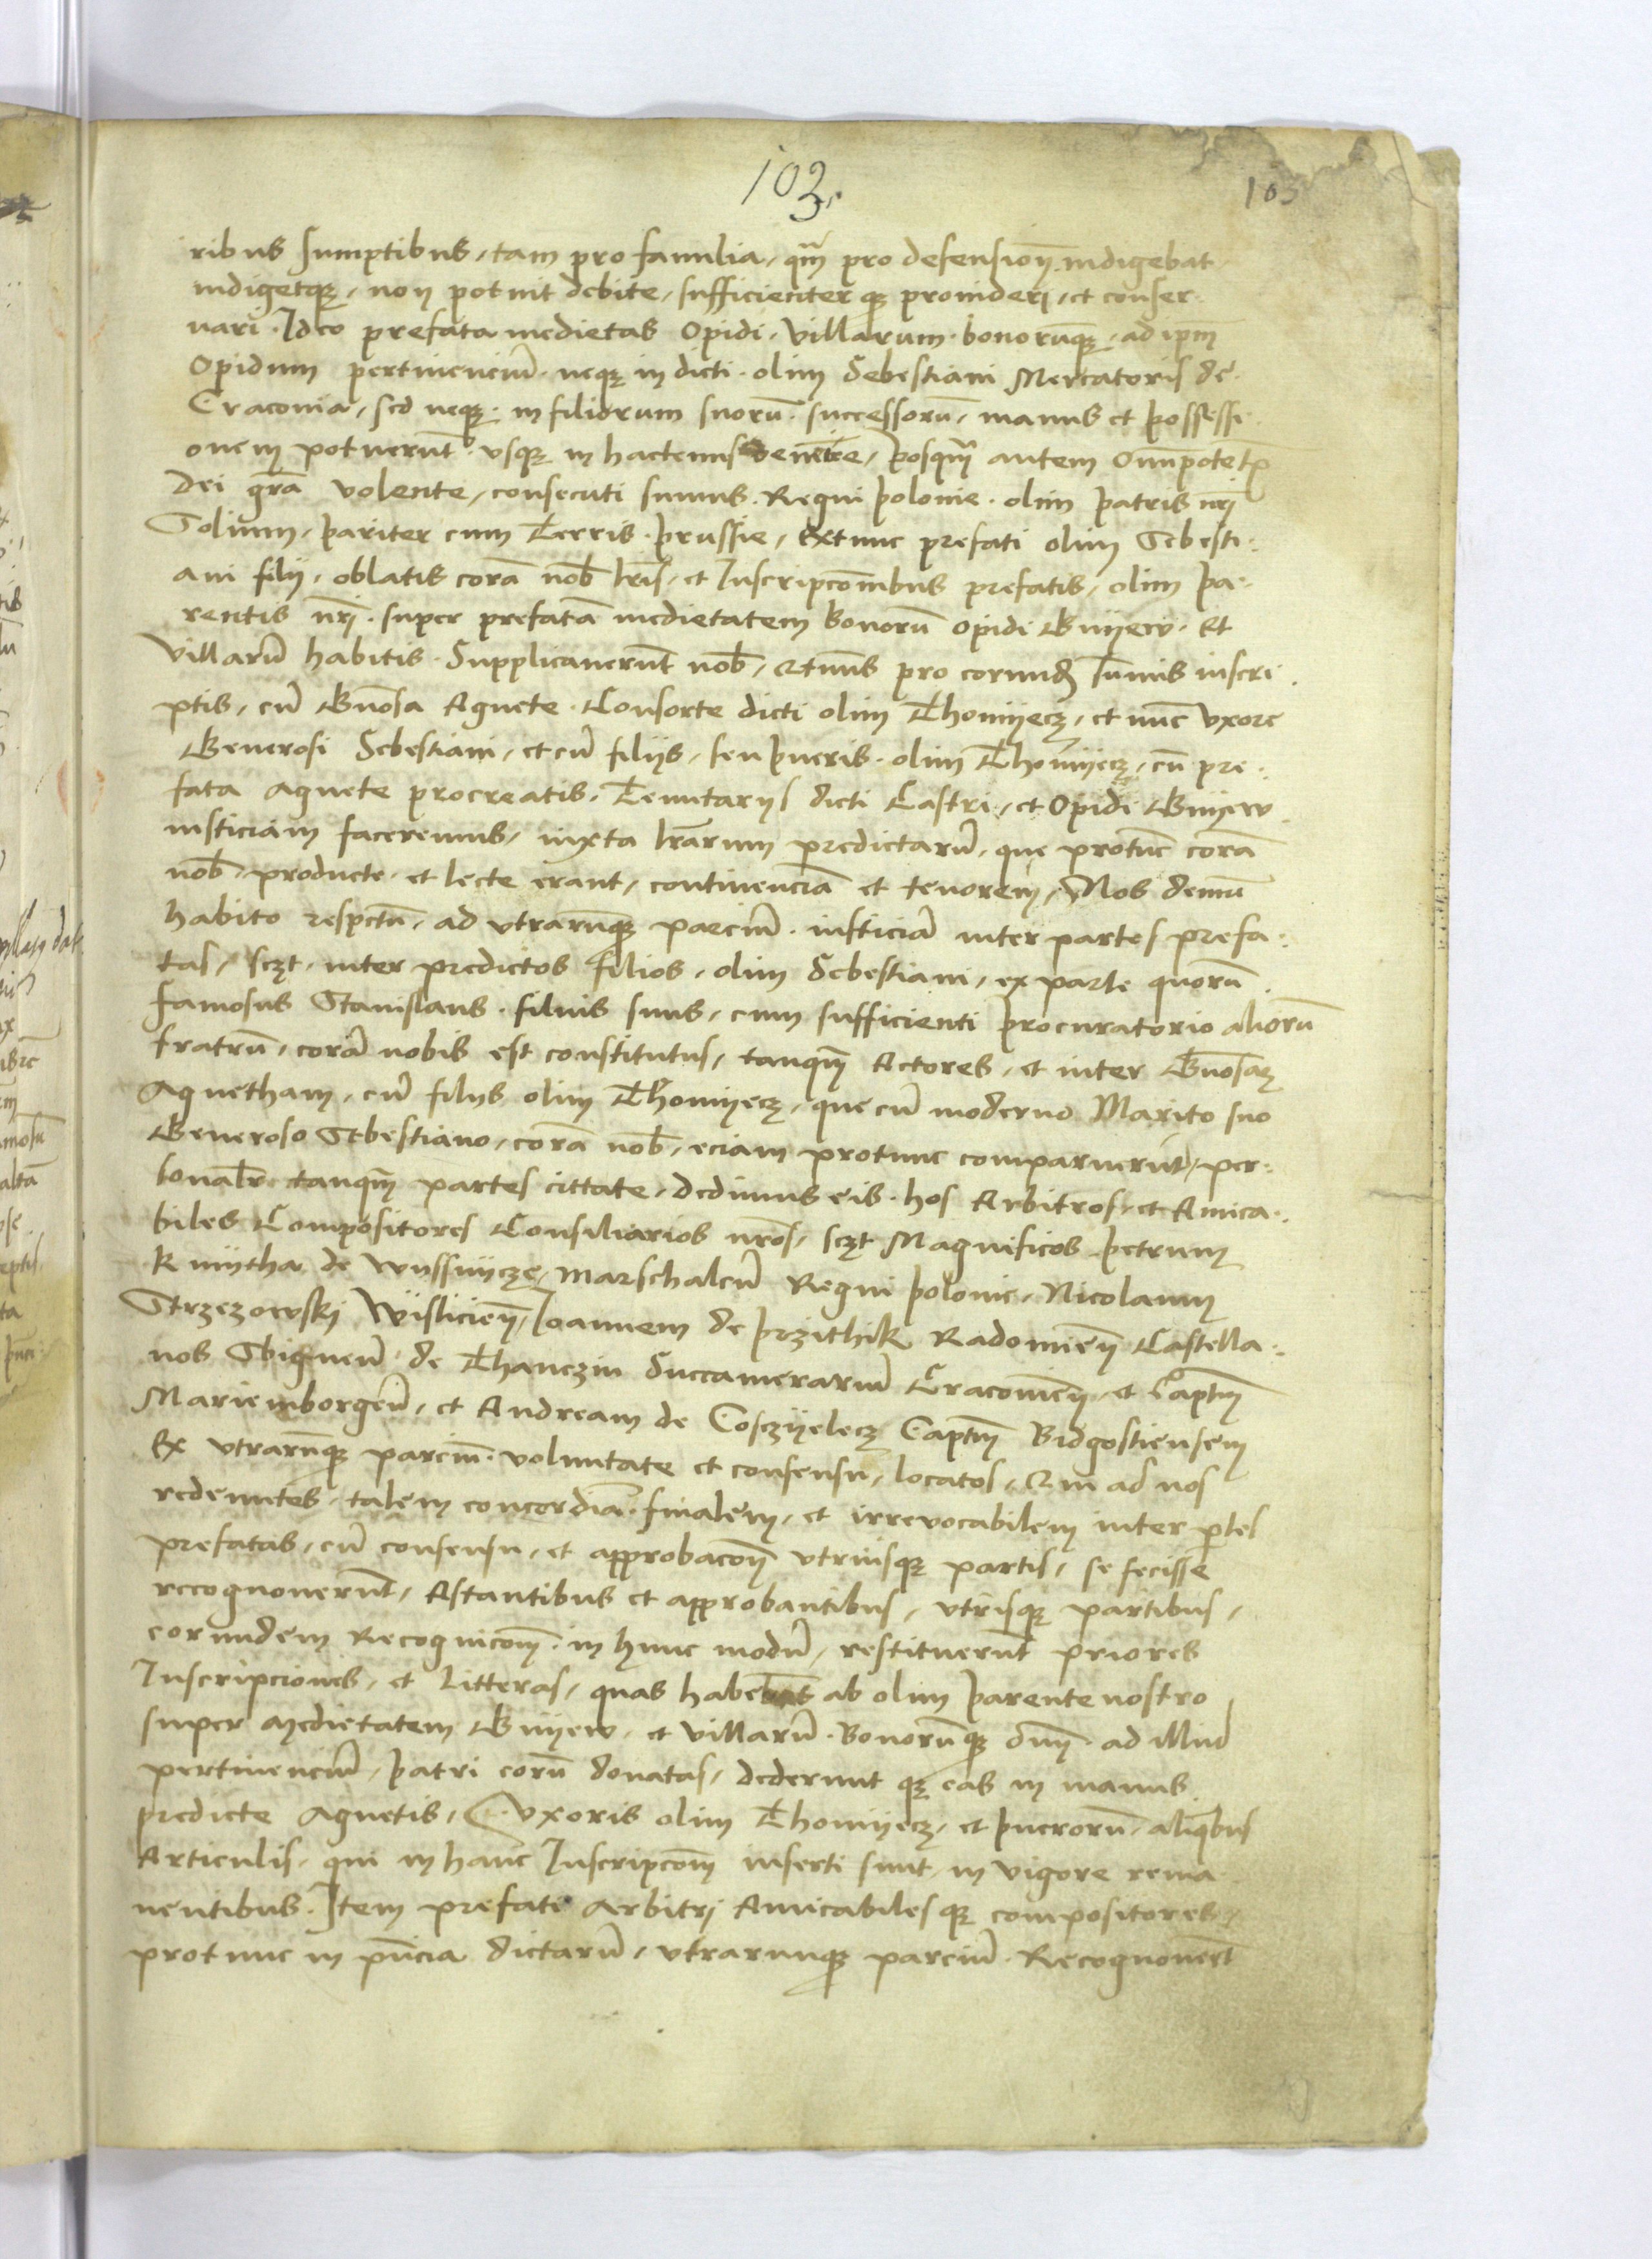 103.
103
ribus sumptibus, tam pro familia, qm̄ pro defensioη̄ indigebat
indigetqꝫ, non potuit debite, sufficienter qꝫ prouideri, et conser
uari. Ideo prefata medietas Opidi, Villarum. bonorūqꝫ, ad ipm̄
Opidum pertinenciū. neqꝫ in dicti. olim Sebestiani Mercatoris de
Craconia, sed neqꝫ. in filiorum suorū. successorū, manus et possessi
onem potuerūt. vsqꝫ in hactenus deuenire, posqm̄ autem Omīpotētꝭ
dei gr̄a volente, consecuti sumus. Regni polonie. olim patris nr̄i
Solium, pariter cum Terris. prussie, Extunc prefati olim Sebesti.
ani filij, oblatis corā nob̄ lr̄is, et Inscripcōnibus prefatis, olim pa.
rentis nr̄i. super prefatā medietatem bonorū Opidi Gnijew. Et
Villarū habitis. Supplicauerūt nob̄, Qtūus pro eorundꝫ sumis inscri.
ptis, cū Gn̄osa Agnete. Consorte dicti olim Thomijecꝫ, et nūc vxore
Generosi Sebestiani, et cū filijs, seu pueris. olim Thomijecꝫ, cū pre.
fata Agnete procreatis. Tenutarijs dicti Castri, et Opidi Gnijew.
iusticiam faceremus, iuxta lr̄arum predictarū, que protūc corā
nob̄. producte. et lecte erant, continenciā et tenorem, Nos demū
habito respectū, ad vtrarūqꝫ parciū. iusticiā inter partes prefa.
tas, scꝫt. inter predictos filios, olim Sebestiani, ex parte quorū.
famosus Stanislaus. filius suus, cum sufficienti procuratorio aliorū
fratrū, corā nobis est constitutus, tanqm̄ Actores, et inter Gn̄osaꝫ
Agnetham, cū filijs olim Thomijecꝫ, que cū moderno Marito suo
Generoso Sebestiano, corā nob̄, eciam protunc comparuerūt, per.
sonalr̄ tanqm̄ partes cittate, dedimus eis. hos Arbitros, et Amica.
biles Compositores Consiliarios nr̄os, scꝫt Magnificos petrum
Kmijtha de Wijssnijcze, Marschalcū Regni polonie, Nicolaum
Strzezowski Wislicieη̄, Ioannem de przithik Radomieη̄ Castella.
nos Sbigneū de Thanczin Succamerariū Cracouieη̄, et Captm̄
Mariemborgeū, et Andream de Cosczijelecꝫ Captm̄ Bidgostiensem
Ex vtrarūqꝫ parciū. voluntate et consensu, locatos, Qui ad nos
redeuntes, talem concordiā. finalem, et irreuocabilem inter ptes
prefatas, cū consensu, et approbacōη̄ vtriusqꝫ partis, se fecisse
recognouerūt, Astantibus et approbantibus, vtrisqꝫ partibus,
eorundem Recognicōm̄. in hunc modū, restituerūt priores
Inscripciones, et Litteras, quas habebant ab olim parente nostro
super Medietatem Gnijew, et Villarū. Bonorūqꝫ om̄ꝫ. ad illud
pertinenciū, patri eorū donatas, dederunt qꝫ eas in manus.
predicte Agnetis, Vxoris olim Thomijecꝫ, et puerorū, aliqbus
Articulis, qui in hanc Inscripcōm̄ inserti sunt, in vigore rema
nentibus. Item prefati Arbitri Amicabiles qꝫ compositores,
protunc in pn̄cia dictarū, vtrarumqꝫ parciū. Recognouer̄t